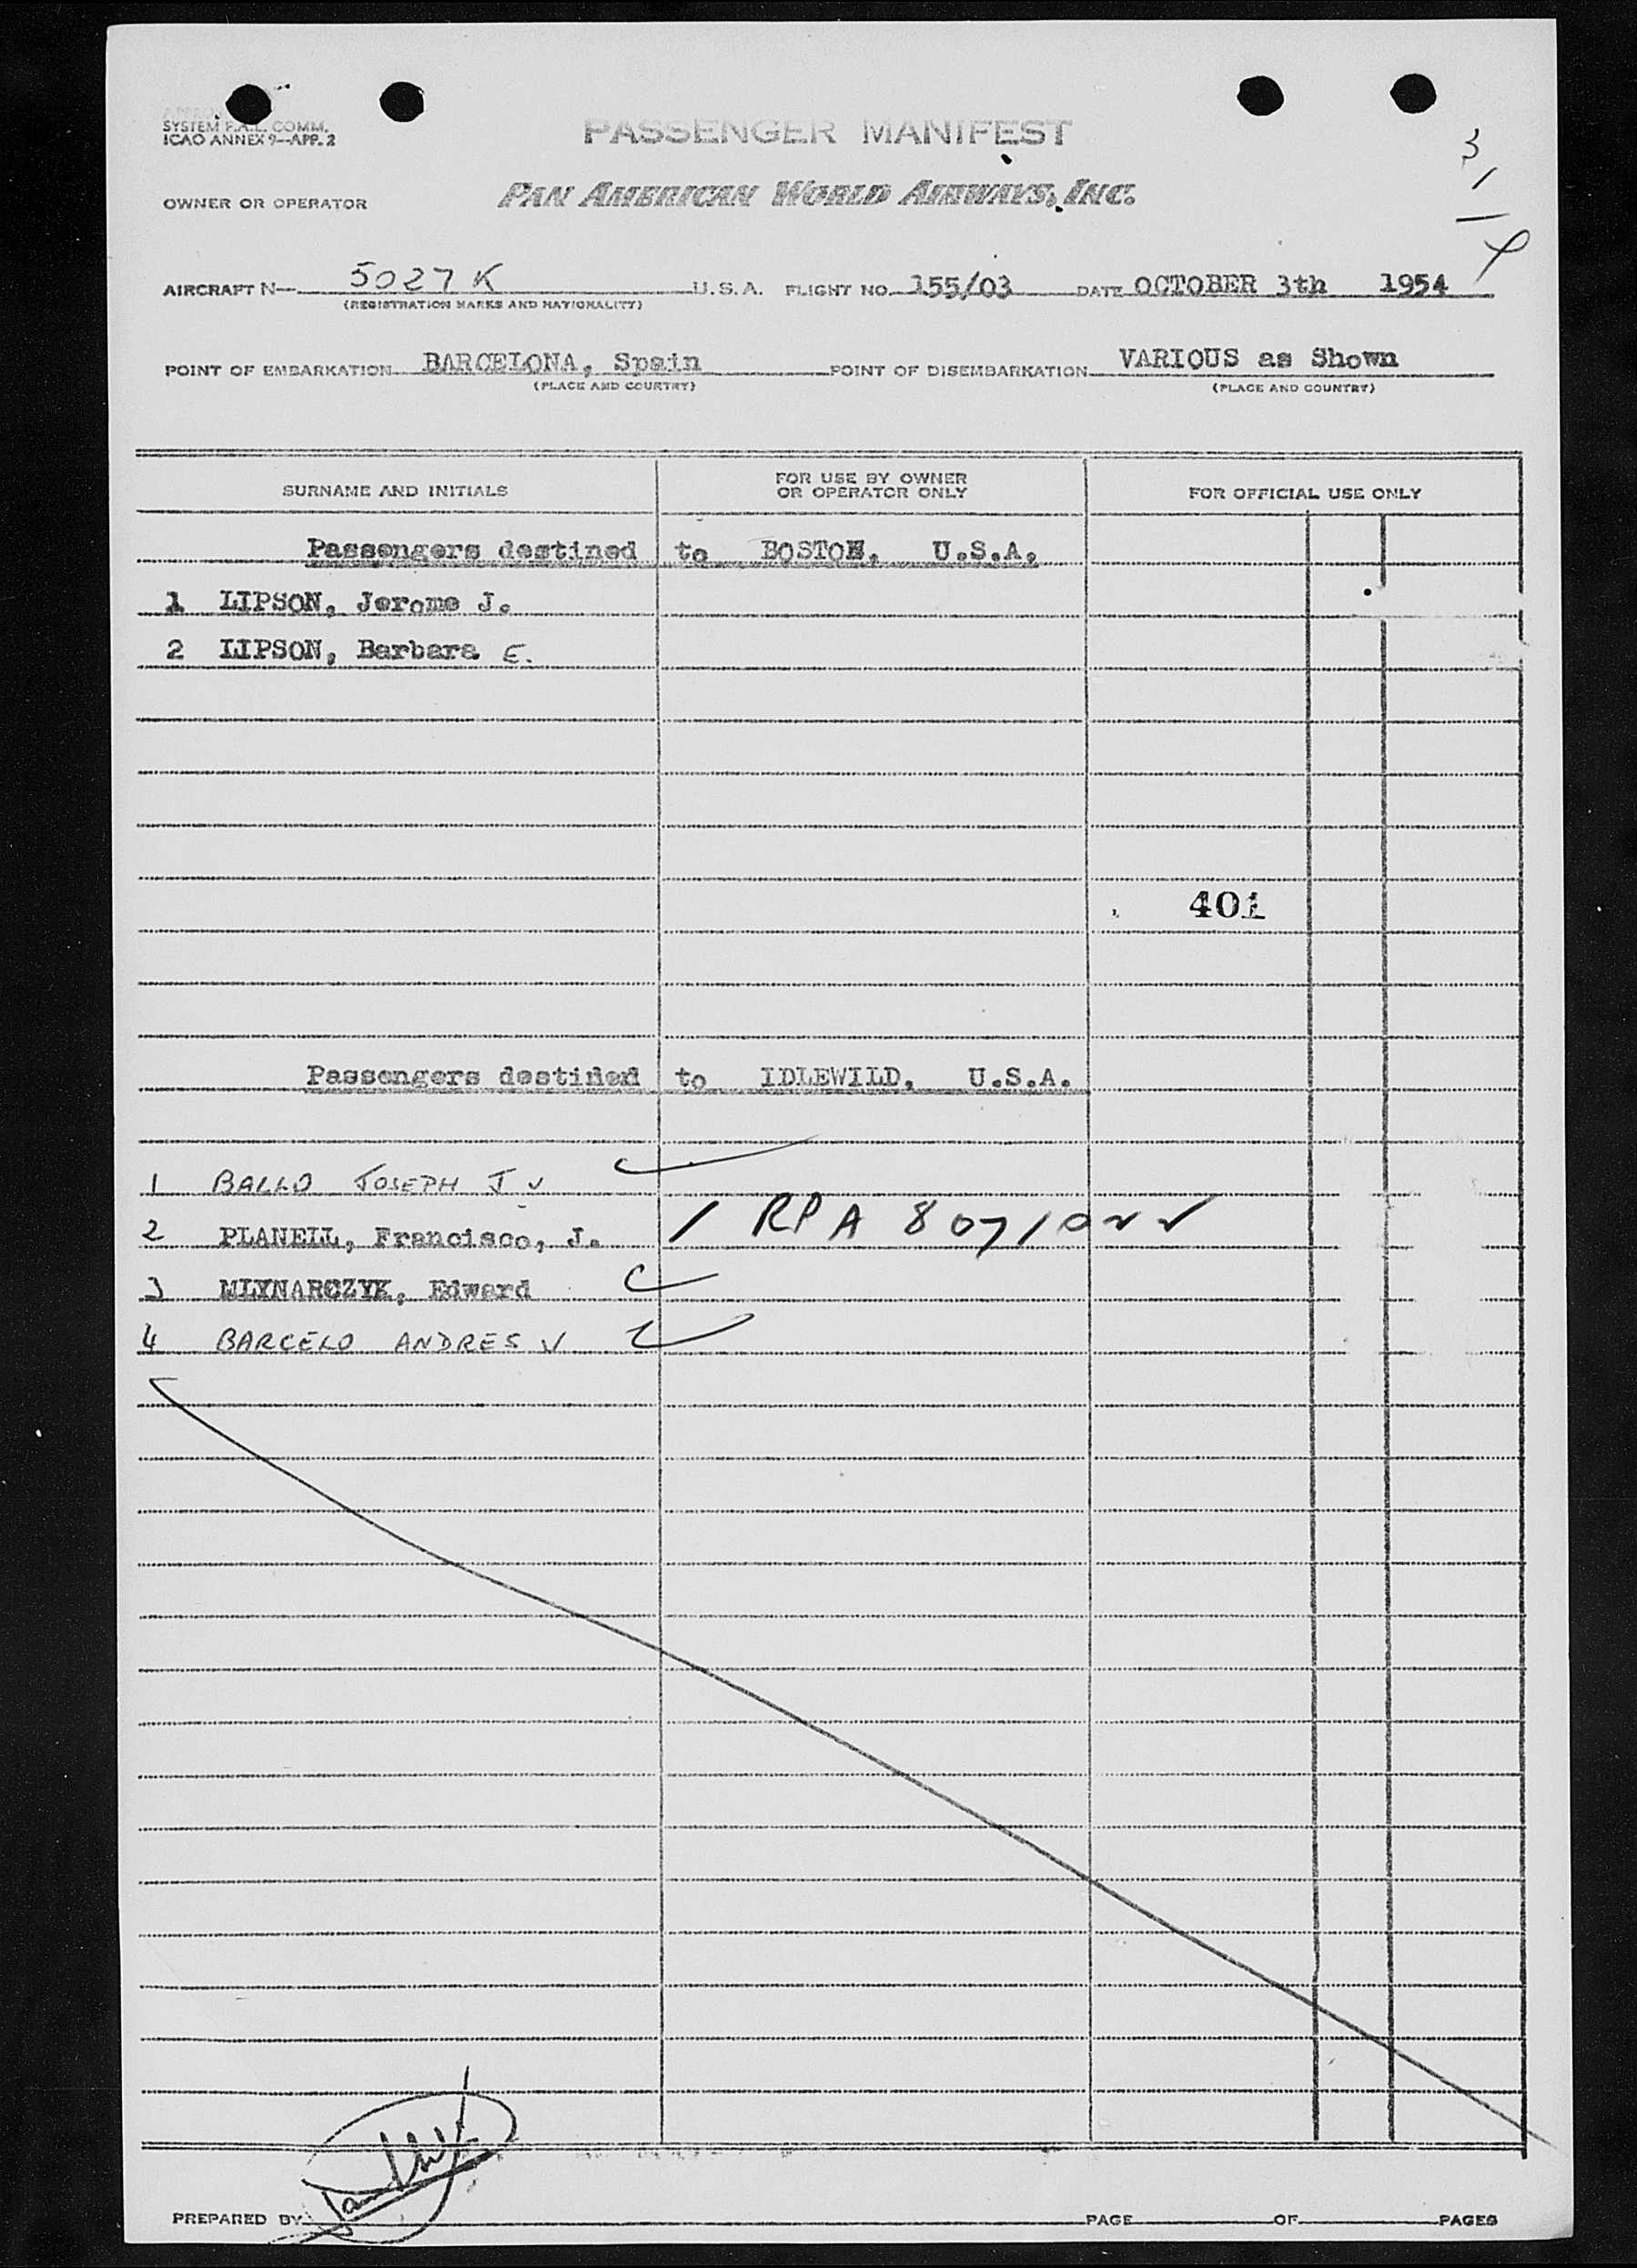 SYSTEM F.A.L. COMM.
ICAO ANNEX 9—APP. 2
PASSENGER MANIFEST
3
1
4
OWNER OR OPERATOR PAN AMERICAN WORLD AIRWAYS, INC.
AIRCRAFT N— 5027K U.S.A. FLIGHT NO. 155/03 DATE OCTOBER 3th 1954
(REGISTRATION MARKS AND NATIONALITY)
POINT OF EMBARKATION BARCELONA, Spain POINT OF DISEMBARKATION VARIOUS as Shown
(PLACE AND COUNTRY) (PLACE AND COUNTRY)
SURNAME AND INITIALS FOR USE BY OWNER OR OPERATOR ONLY FOR OFFICIAL USE ONLY
Passengers destined to BOSTON, U.S.A.
1 LIPSON, Jerome J.
2 LIPSON, Barbara E.
401
Passengers destined to IDLEWILD, U.S.A.
1 BALLO JOSEPH J ✓
2 PLANELL, Francisco, J. / RPA 807/022 ✓
3 MLYNARCZYK, Edward
4 BARCELO ANDRES ✓
PREPARED BY PAGE OF PAGES